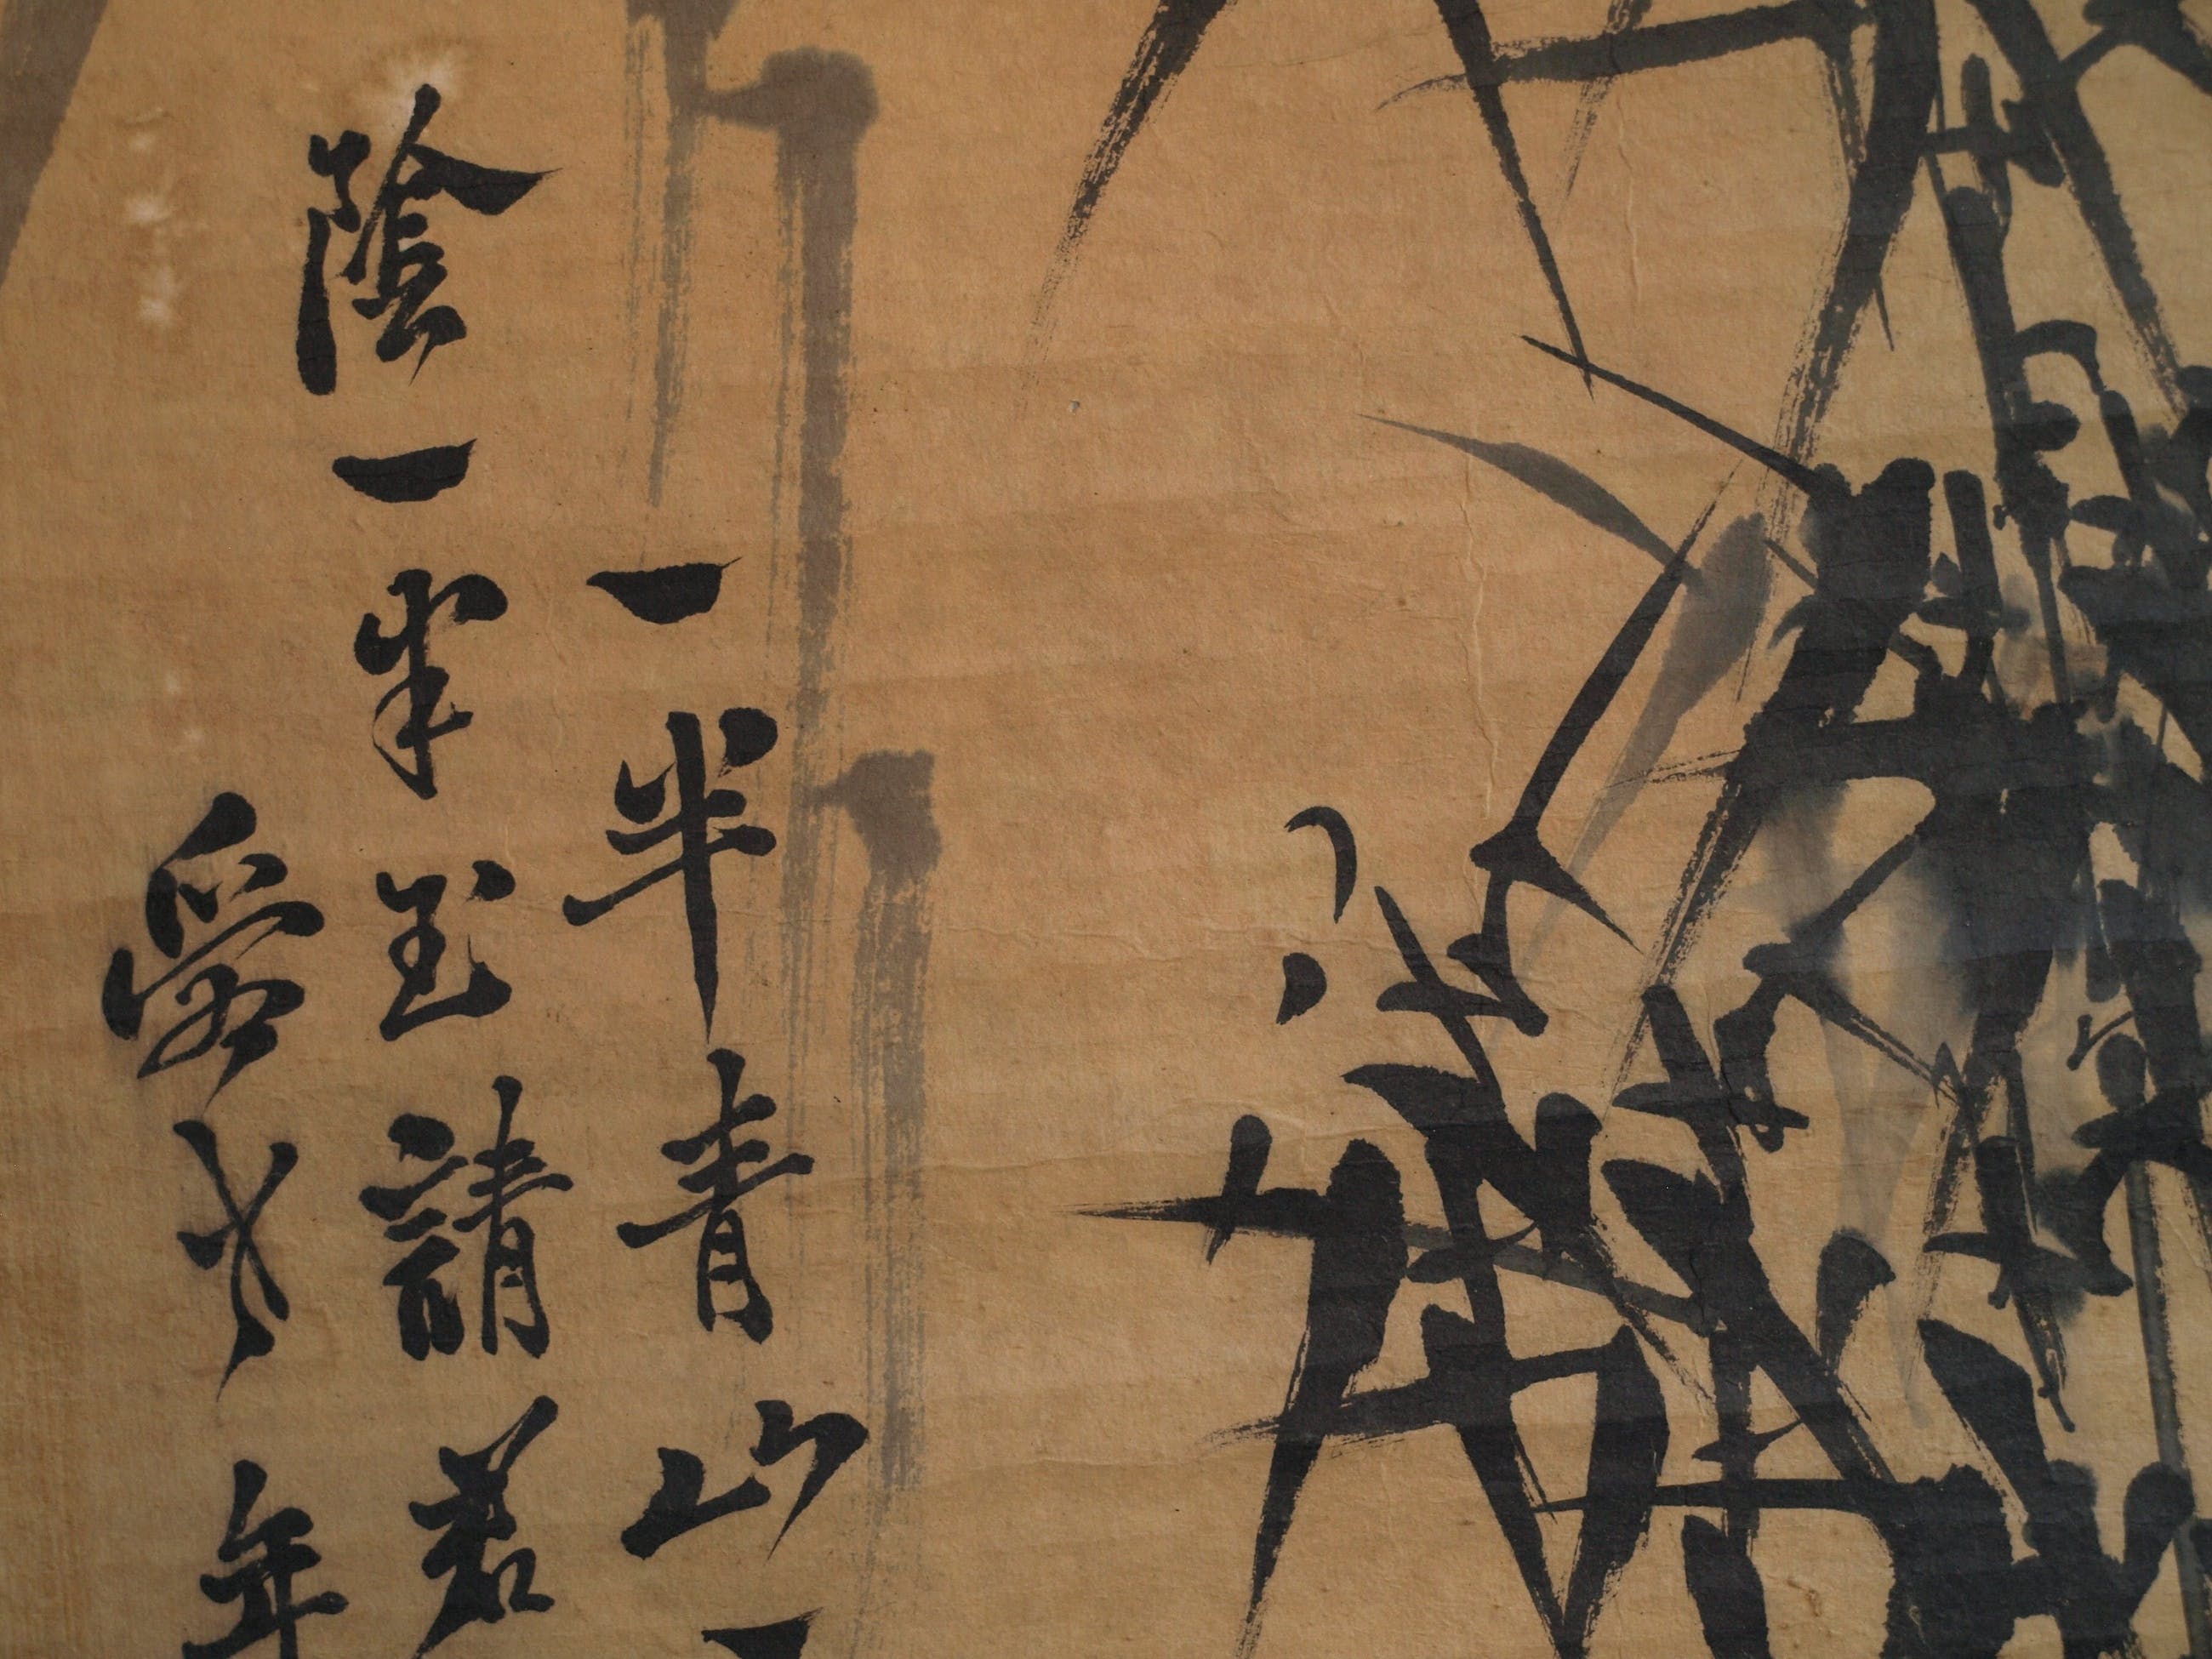 一半青山一
陰一半玉請君
年